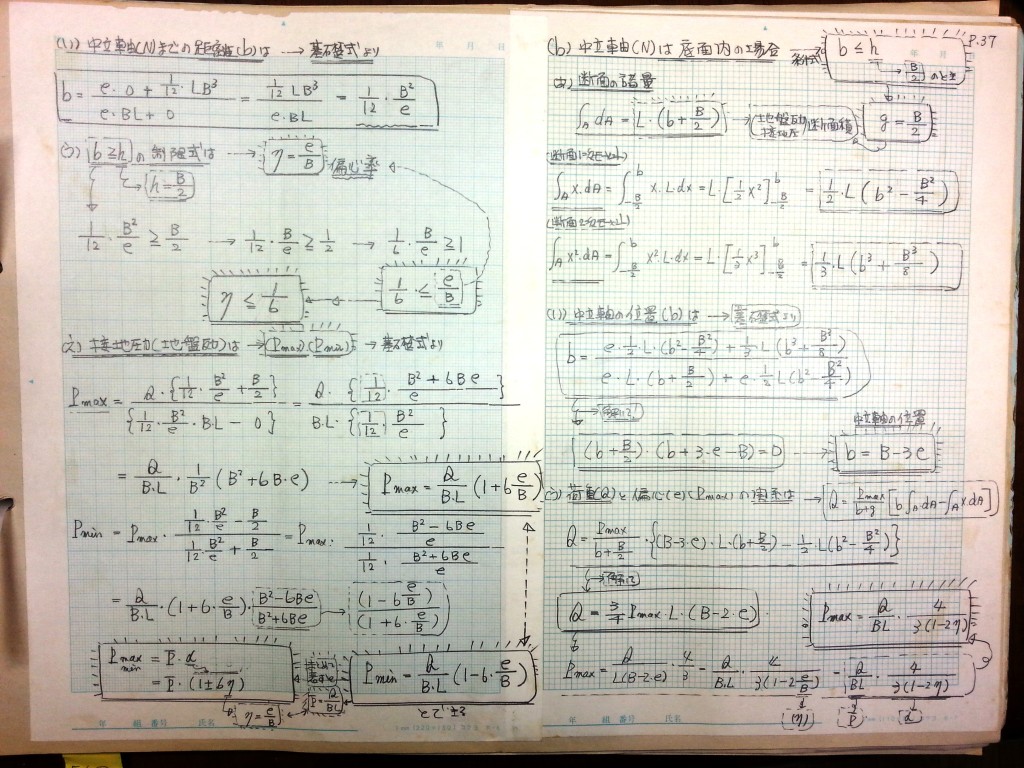 (い) 中立軸(N)までの距離(b)は → 基礎式より
b = (e・0 + 1/12 LB³)/(e・BL + 0) = (1/12 LB³)/(e・BL) = 1/12・B²/e
(う) (b≧h)の制限式は → η = e/B 偏心率
h = B/2
1/12・B²/e ≧ B/2 → 1/12・B/e ≧ 1/2 → 1/6・B/e ≧ 1
η ≦ 1/6
(え) 接地圧(地盤反力)は → (Pmax)、(Pmin) → 基礎式より
Pmax = Q・{1/12・B²/e + B/2}/{1/12・B²/e・B・L − 0} = Q・{1/12・(B²+6Be)/e}/B・L・{1/12・B²/e}
= Q/B・L・1/B²(B²+6B・e) → Pmax = Q/B・L(1+6 e/B)
Pmin = Pmax・(1/12・B²/e − B/2)/(1/12・B²/e + B/2) = Pmax・(1/12・(B²−6Be)/e)/(1/12・(B²+6Be)/e)
= Q/B・L・(1+6・e/B)・(B²−6Be)/(B²+6Be) → (1−6 e/B)/(1+6・e/B)
Pmax min = P・α
= P・(1±6η)
η = e/B
P = Q/BL
Pmin = Q/B・L(1−6・e/B)
年 組 番号 氏名
P.37
(b) 中立軸(N)は底面内の場合
b ≦ h
B/2 のとき
(あ) 断面の諸量
∫A dA = L・(b + B/2) → 断面積
g = B/2
(断面1次モーメント)
∫A x・dA = ∫ x・L・dx = L・[1/2 x²] = 1/2・L(b² − B²/4)
(断面2次モーメント)
∫A x²・dA = ∫ x²・L・dx = L・[1/3 x³] = 1/3・L(b³ + B³/8)
(い) 中立軸の位置(b)は → 基礎式より
b = (e・1/2・L・(b²−B²/4) + 1/3・L(b³+B³/8))/(e・L・(b+B/2) + e・1/2 L(b²−B²/4))
(b + B/2)・(b + 3・e − B) = 0
中立軸の位置
b = B − 3e
(う) 荷重(Q)と偏心(e)(Pmax)の関係は → Q = Pmax/(b+g)[b∫A・dA − ∫A x・dA]
Q = Pmax/(b+B/2)・{(B−3e)・L・(b+B/2) − 1/2・L(b²−B²/4)}
Q = 3/4 Pmax・L・(B−2・e)
Pmax = Q/BL・4/3(1−2η)
Pmax = Q/L(B−2・e)・4/3 = Q/B・L・4/3(1−2 e/B) = Q/BL・4/3(1−2η)
(η) P α
年 組 番号 氏名